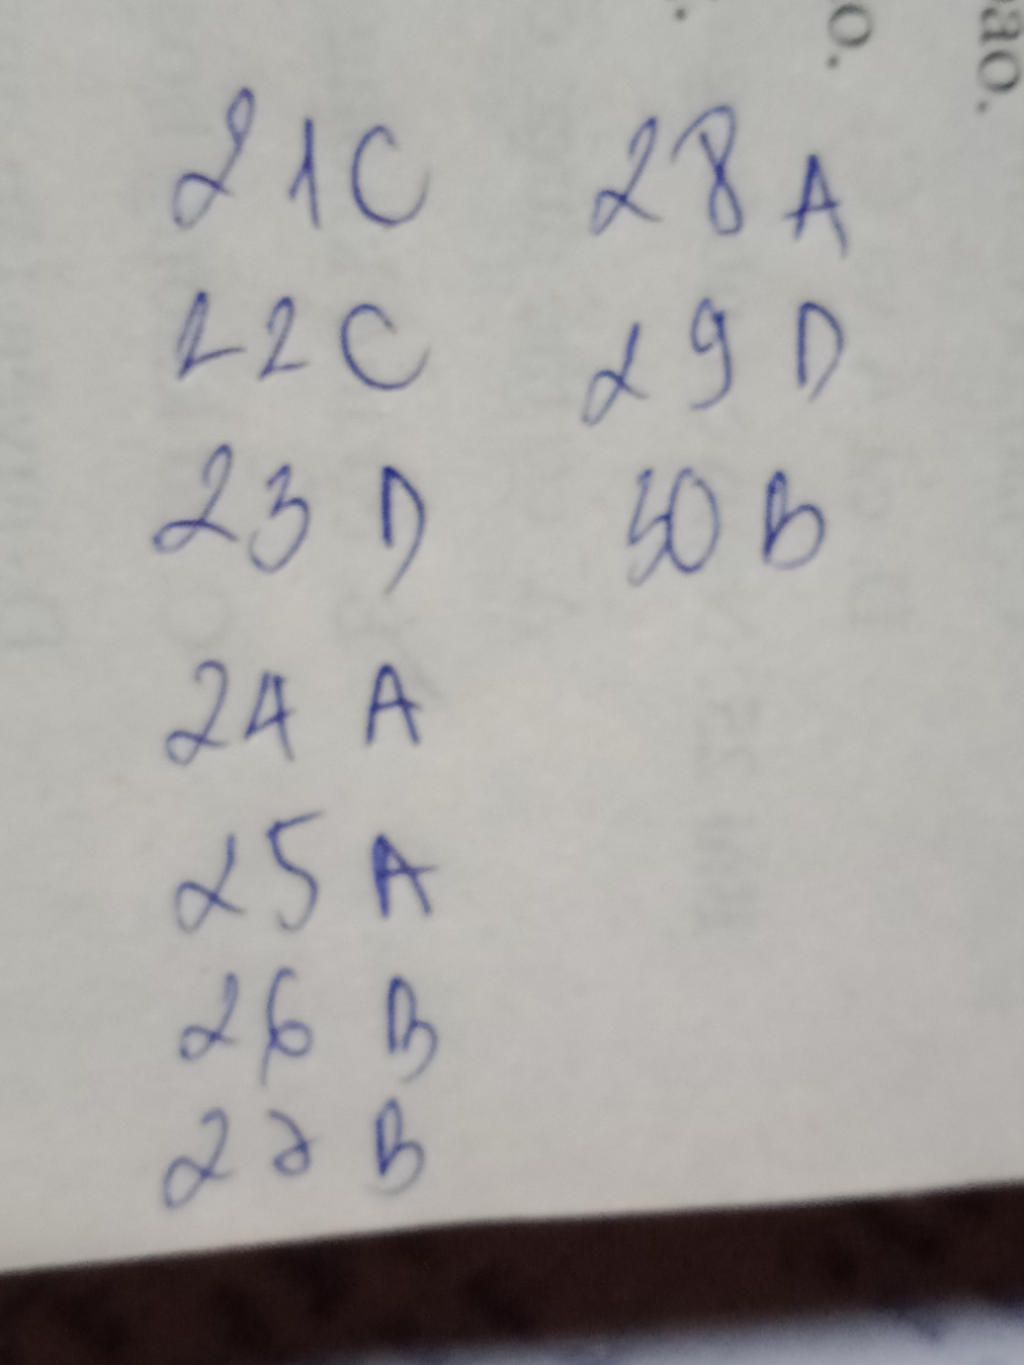 21 C
22 C
23 D
24 A
25 A
26 B
27 B
28 A
29 D
30 B